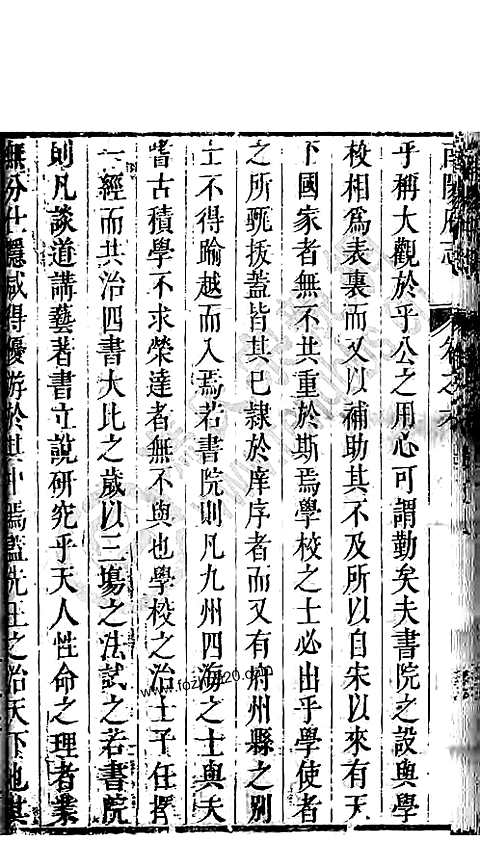 南陽府志
卷之六
乎稱大觀於乎公之用心可謂勤矣夫書院之設與學
校相為表裏而又以補助其不及所以自宋以來有天
下國家者無不共重於斯焉學校之士必出乎學使者
之所甄拔蓋皆其已隸於庠序者而又有府州縣之別
士不得踰越而入焉若書院則凡九州四海之士與夫
嗜古積學不求榮達者無不與也學校之治士子任擇
一經而共治四書大比之歲以三塲之法試之若書院
則凡談道講藝著書立說研究乎天人性命之理者業
無分仕隱咸得優游於其中焉蓋先王之治天下也其
www.foz.net20.com